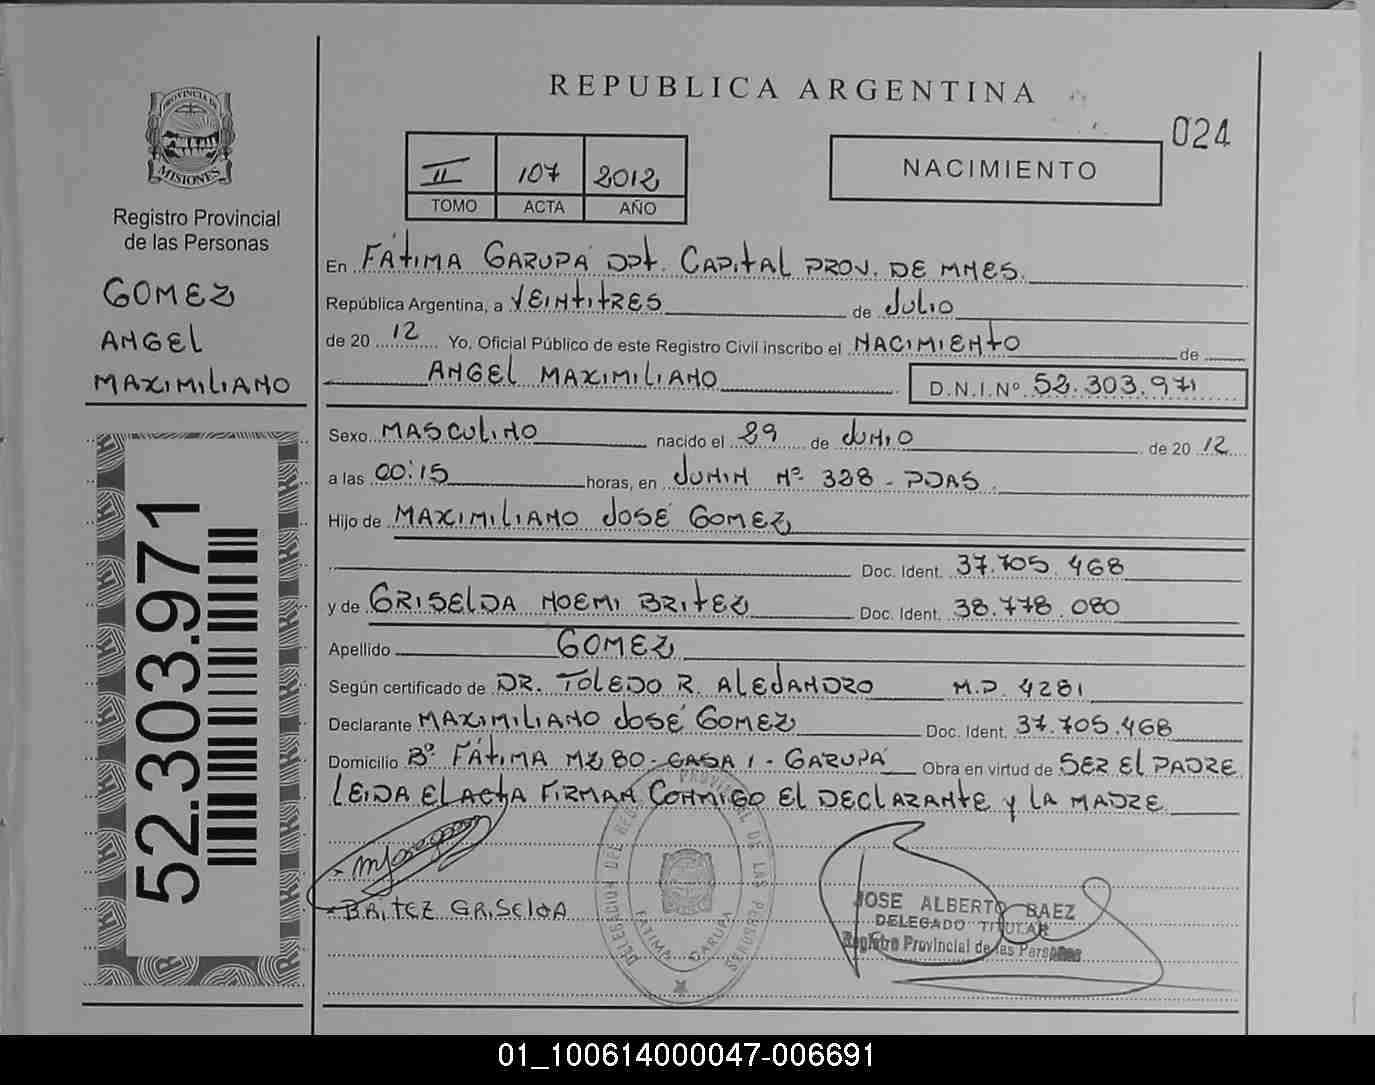 REPUBLICA ARGENTINA
024
PROVINCIA DE
MISIONES
Registro Provincial
de las Personas
GOMEZ
ANGEL
MAXIMILIANO
52.303.971
II 107 2012
TOMO ACTA AÑO
NACIMIENTO
En FÁTIMA GARUPÁ DPT. CAPITAL PROV. DE MNES.
República Argentina, a VEINTITRES de JULIO
de 20 12 Yo, Oficial Público de este Registro Civil inscribo el NACIMIENTO de
ANGEL MAXIMILIANO D.N.I.Nº 52.303.971
Sexo MASCULINO nacido el 29 de JUNIO de 20 12
a las 00:15 horas, en JUNIN Nº 328 - PDAS.
Hijo de MAXIMILIANO JOSÉ GOMEZ
Doc. Ident. 37.705.468
y de GRISELDA NOEMI BRITEZ Doc. Ident. 38.778.080
Apellido GOMEZ
Según certificado de DR. TOLEDO R. ALEJANDRO M.P. 4281
Declarante MAXIMILIANO JOSÉ GOMEZ Doc. Ident. 37.705.468
Domicilio Bº FÁTIMA MZ 80 - CASA 1 - GARUPÁ Obra en virtud de SER EL PADRE
LEIDA EL ACTA FIRMAN CONMIGO EL DECLARANTE y LA MADRE
BRITEZ GRISELDA
DELEGACION DEL REG PROVINCIAL DE LAS PERSONAS
FATIMA GARUPA
JOSE ALBERTO BAEZ
DELEGADO TITULAR
Registro Provincial de las Personas
01_100614000047-006691